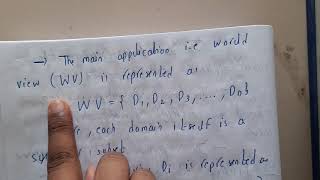 → The main application i.e world
view (WV) is represented as
WV = { D1, D2, D3, ...., Dn}
, each domain itself is a
subset
, Di is represented as